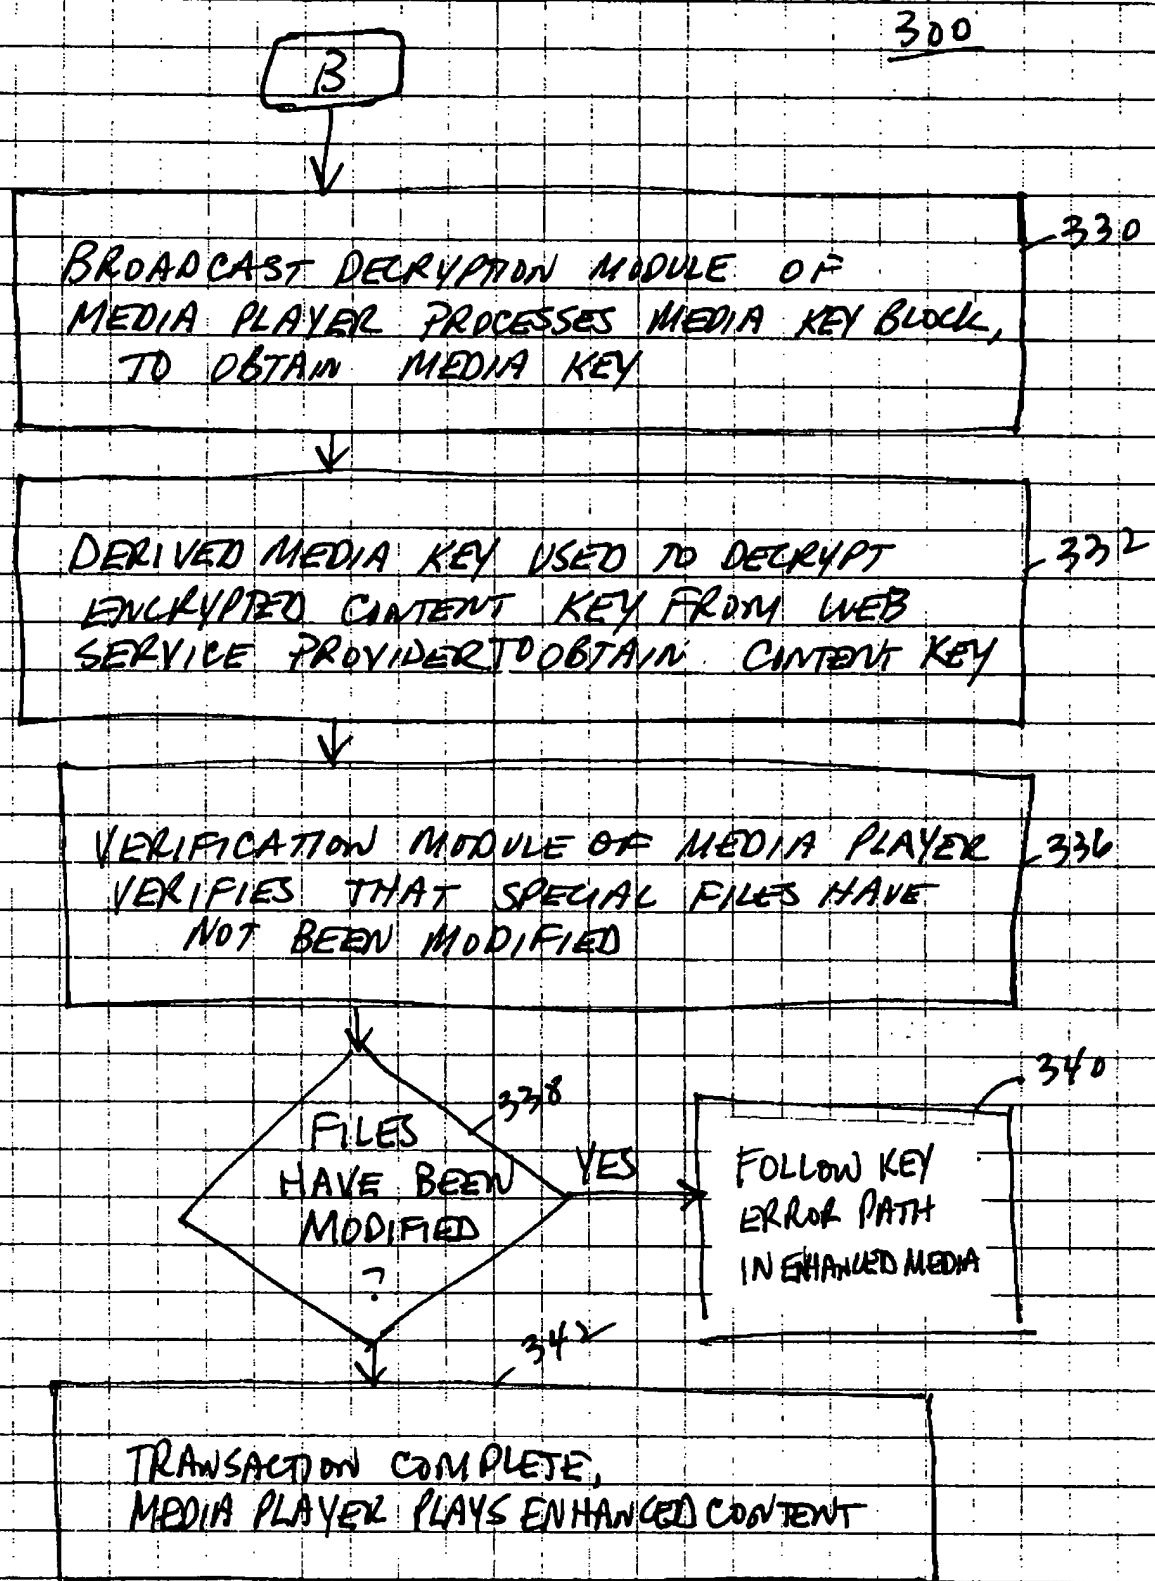 300
B
330
BROADCAST DECRYPTION MODULE OF
MEDIA PLAYER PROCESSES MEDIA KEY BLOCK,
TO OBTAIN MEDIA KEY
332
DERIVED MEDIA KEY USED TO DECRYPT
ENCRYPTED CONTENT KEY FROM WEB
SERVICE PROVIDER TO OBTAIN CONTENT KEY
336
VERIFICATION MODULE OF MEDIA PLAYER
VERIFIES THAT SPECIAL FILES HAVE
NOT BEEN MODIFIED
338
FILES
HAVE BEEN
MODIFIED
?
YES
340
FOLLOW KEY
ERROR PATH
IN ENHANCED MEDIA
342
TRANSACTION COMPLETE,
MEDIA PLAYER PLAYS ENHANCED CONTENT